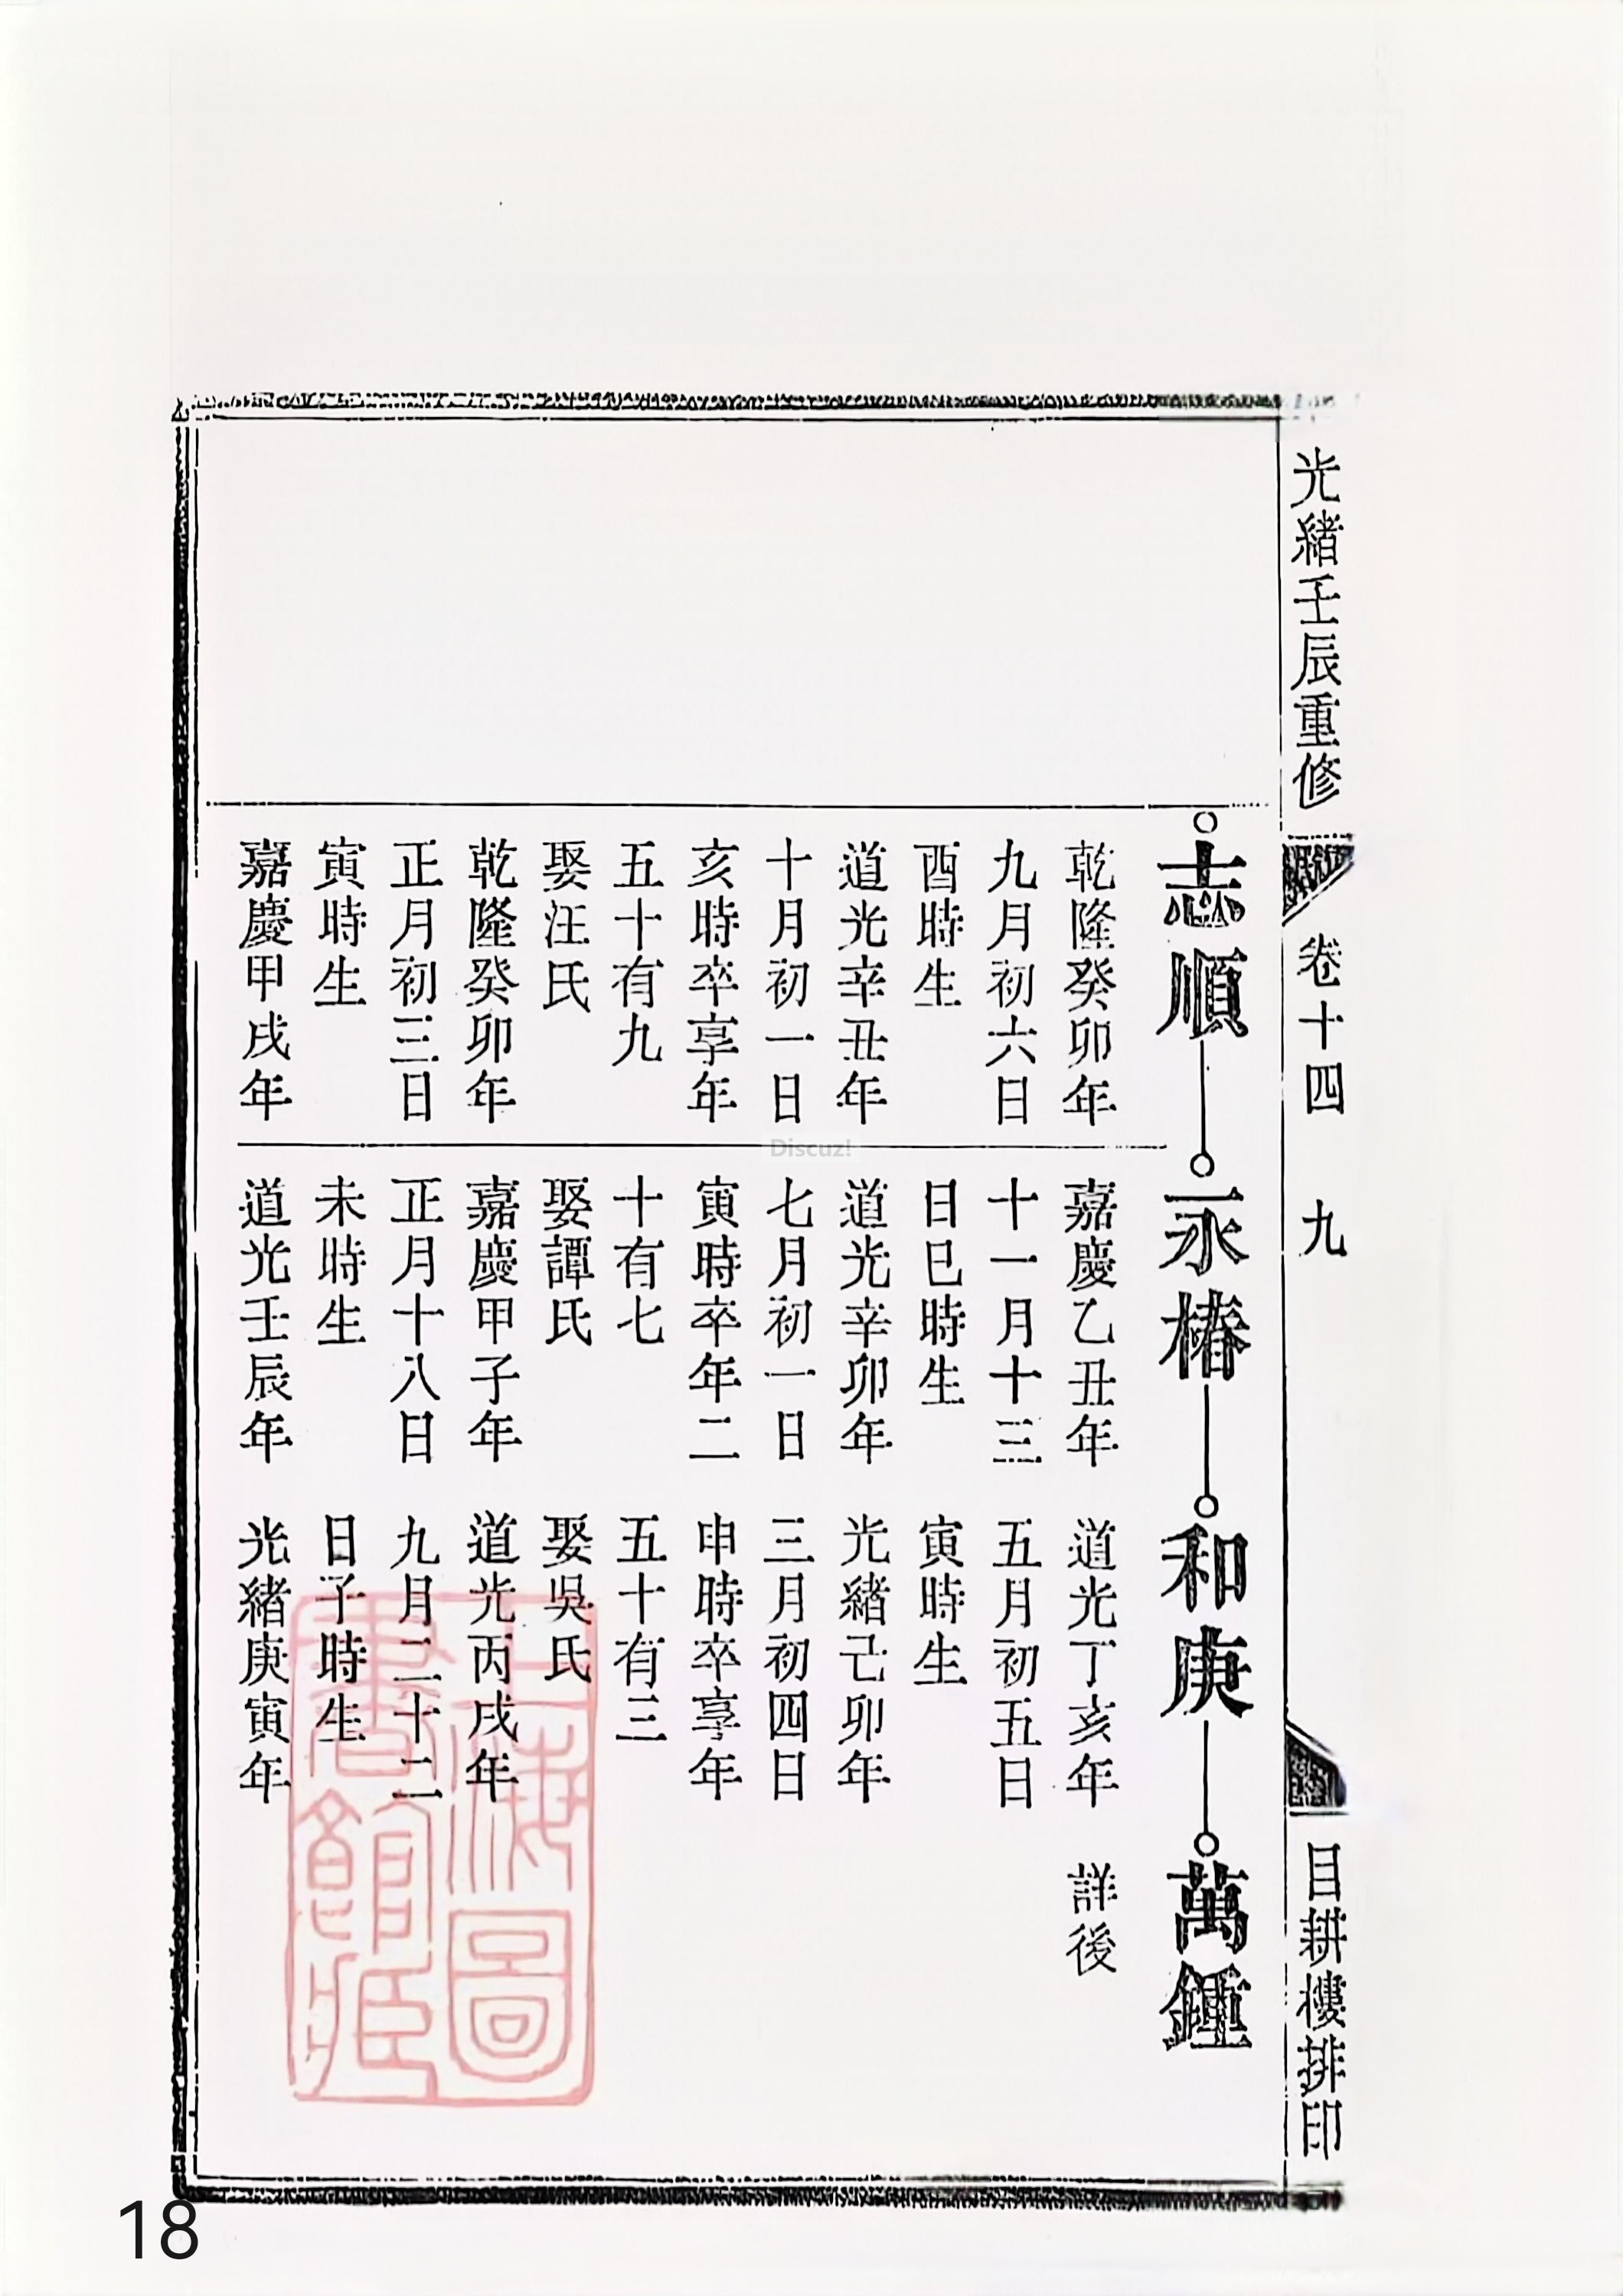 光緒壬辰重修
卷十四
九
目耕樓排印
志順
永椿
和庚
萬鍾
乾隆癸卯年
九月初六日
酉時生
道光辛丑年
十月初一日
亥時卒享年
五十有九
娶汪氏
乾隆癸卯年
正月初三日
寅時生
嘉慶甲戌年
嘉慶乙丑年
十一月十三
日巳時生
道光辛卯年
七月初一日
寅時卒年二
十有七
娶譚氏
嘉慶甲子年
正月十八日
未時生
道光壬辰年
道光丁亥年
五月初五日
寅時生
光緒己卯年
三月初四日
申時卒享年
五十有三
娶吳氏
道光丙戌年
九月二十二
日子時生
光緒庚寅年
詳後
上海圖
書館藏
Discuz!
18